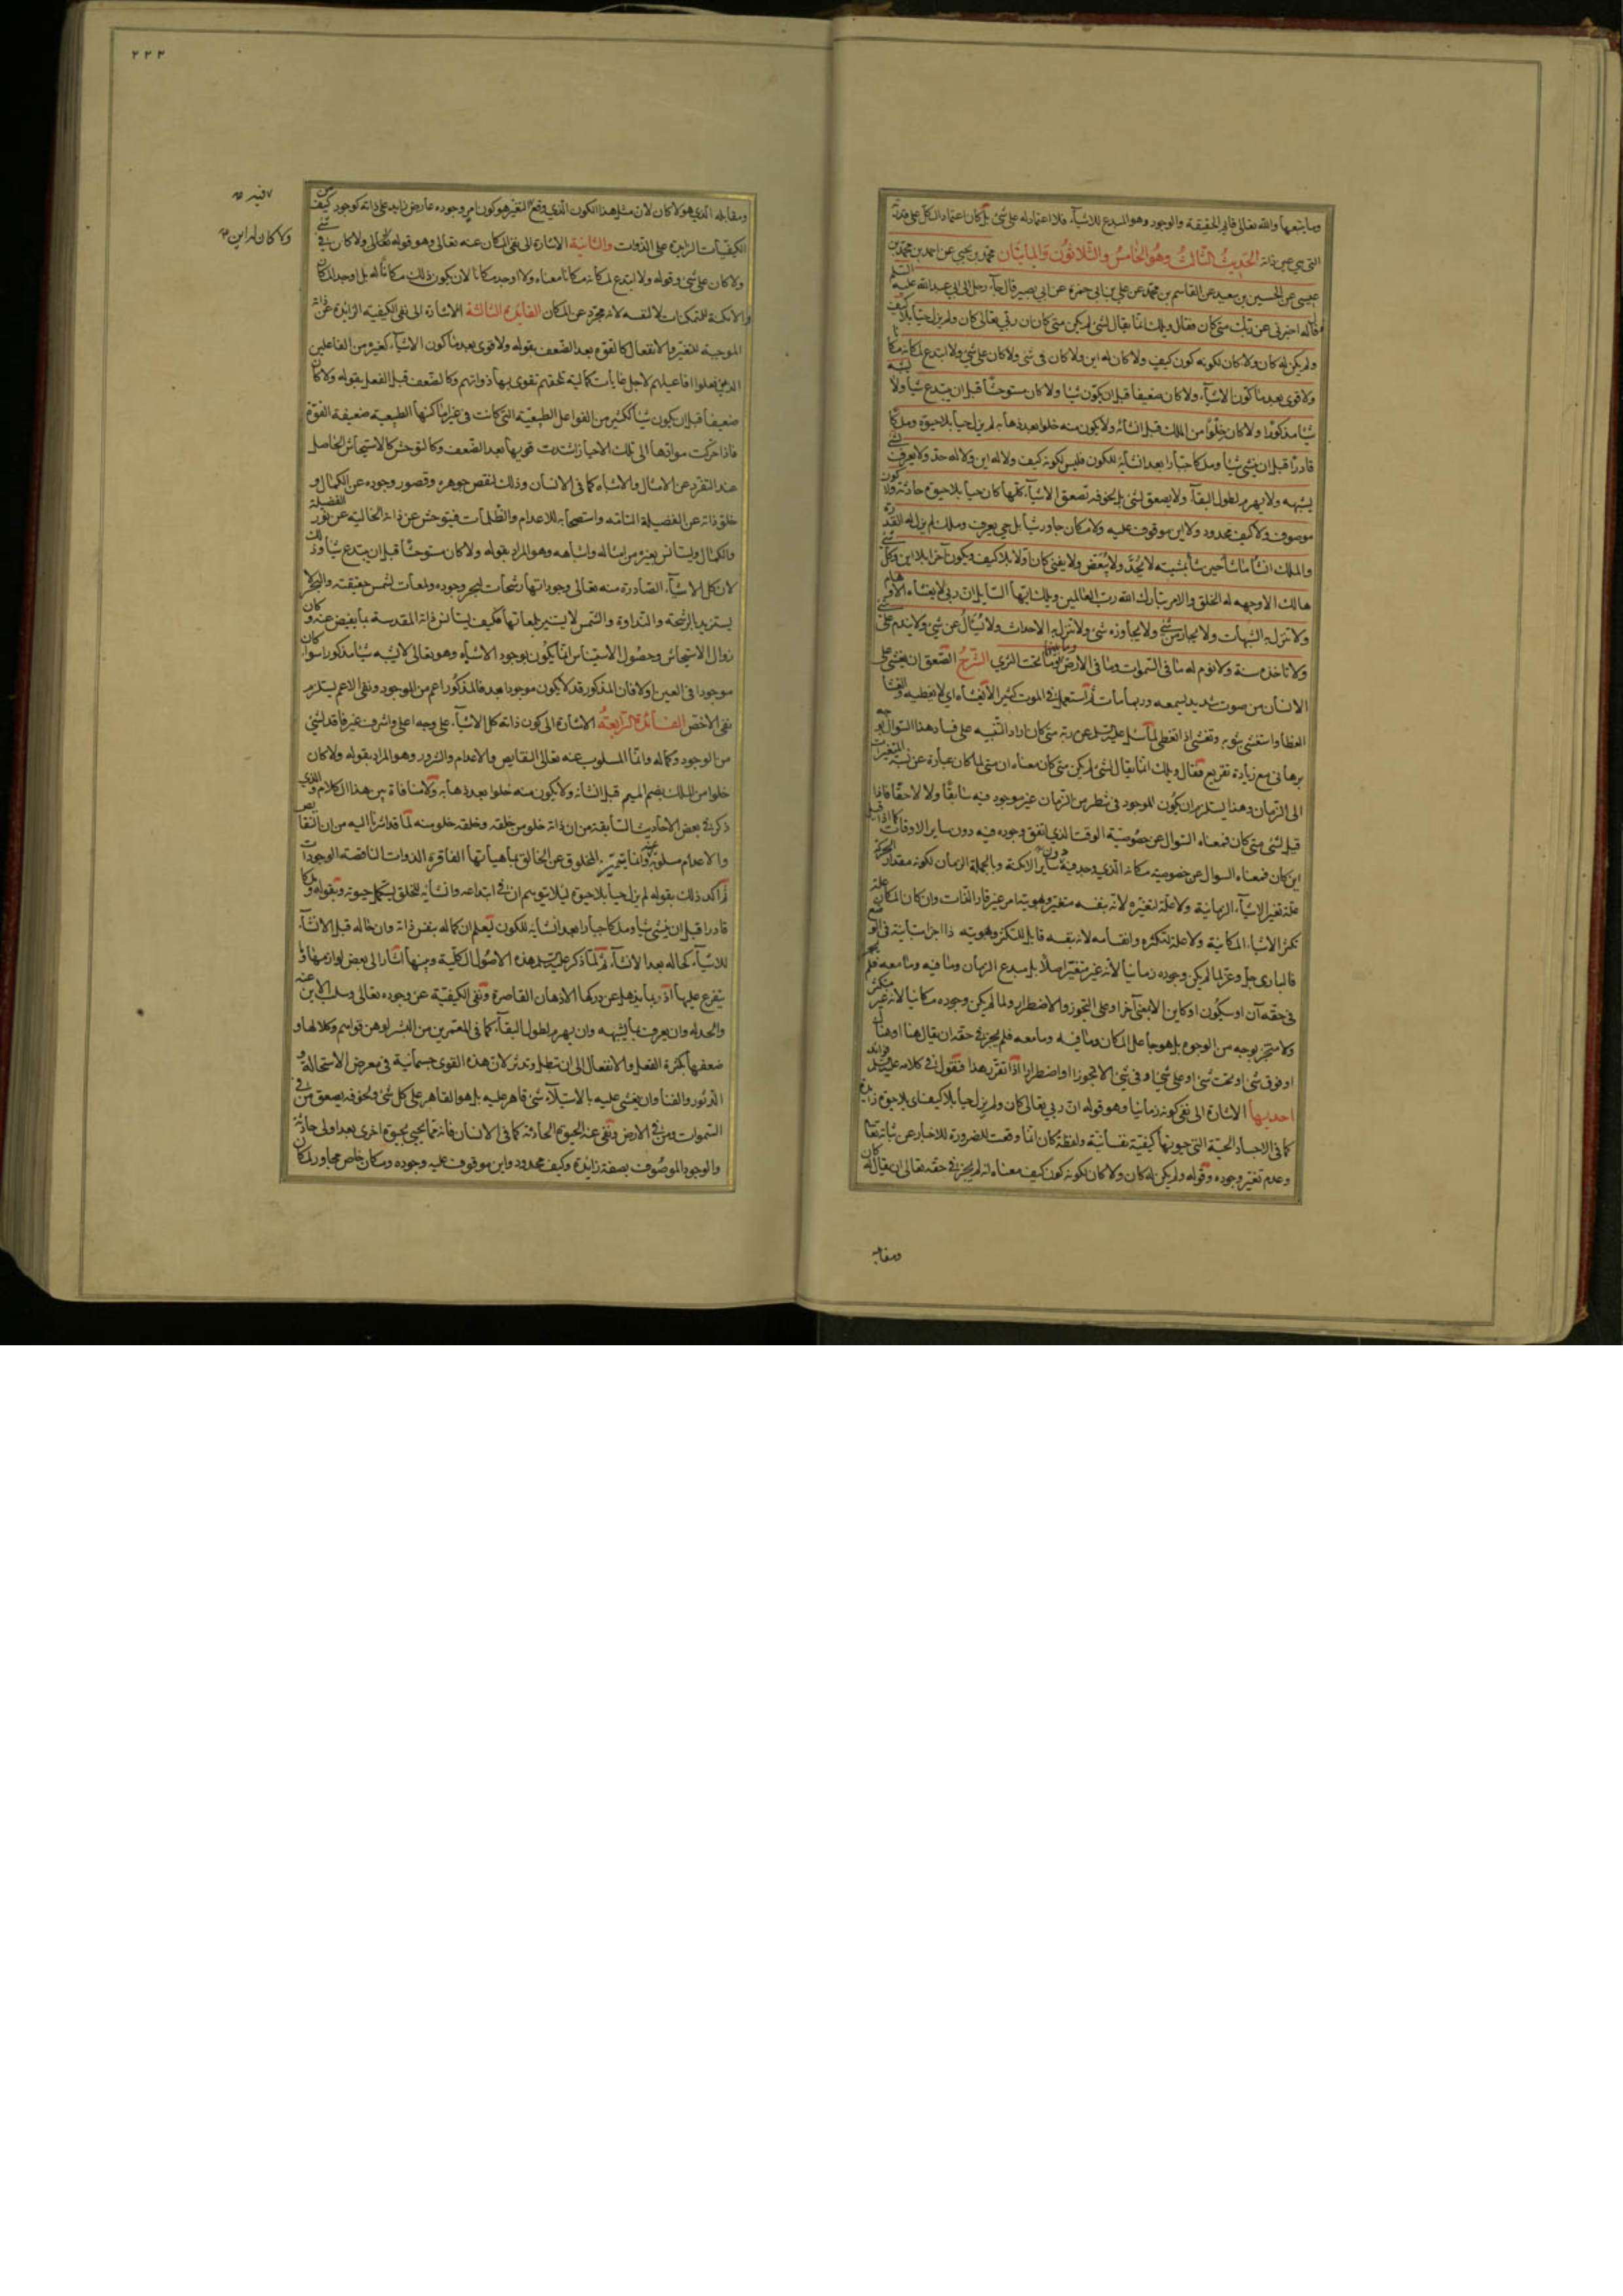 وما يتبعها والله تعالى قايم الحقيقة والوجود وهو المبدع للاشياء فلا اعتماد له على شئ بل كان اعتماد الكل على قدرته
التى هى عين ذاته الحديث الثالث وهو الخامس والثلاثون والمايتان محمد بن يحيى عن احمد بن محمد بن
عيسى عن الحسين بن سعيد عن القاسم بن محمد عن على بن ابى حمزة عن ابى بصير قال جاء رجل الى ابى عبد الله عليه السلم
فقال له اخبرنى عن ربك متى كان فقال ويلك انما يقال لشئ لم يكن متى كان ان ربى تعالى كان ولم يزل حيا بلا كيف
ولم يكن له كان ولا كان لكونه كون كيف ولا كان له اين ولا كان فى شئ ولا كان على شئ ولا ابتدع لمكانه مكانا
ولا قوى بعد ما كون الاشياء ولا كان ضعيفا قبل ان يكون شيئا ولا كان مستوحشا قبل ان يبتدع شيئا ولا يشبه
شيئا مذكورا ولا كان خلوا من الملك قبل انشائه ولا يكون منه خلوا بعد ذهابه لم يزل حيا بلا حيوة وملكا
قادرا قبل ان ينشئ شيئا وملكا جبارا بعد انشائه للكون فليس لكونه كيف ولا له اين ولا له حد ولا يعرف بشئ
يشبهه ولا يهرم لطول البقاء ولا يصعق لشئ بل لخوفه تصعق الاشياء كلها كان حيا بلا حيوة حادثة ولا كون
موصوف ولا كيف محدود ولا اين موقوف عليه ولا مكان جاور شيئا بل حى يعرف وملك لم يزل له القدرة
والملك انشأ ما شاء حين شاء بمشيته لا يحد ولا يبعض ولا يفنى كان اولا بلا كيف ويكون آخرا بلا اين وكل شئ
هالك الا وجهه له الخلق والامر تبارك الله رب العالمين ويلك ايها السايل ان ربى لا يغشاه الاوهام
ولا تنزل به الشبهات ولا يجار من شئ ولا يجاوزه شئ ولا تنزل به الاحداث ولا يسأل عن شئ ولا يندم على شئ
ولا تاخذه سنة ولا نوم له ما فى السموات وما فى الارض وما بينهما وما تحت الثرى الشرح الصعق ان يغشى على
الانسان من صوت شديد يسمعه وربما مات ثم استعمل فى الموت كثيرا لا يغشاه اى لا يغطيه والغشا
الغطا واستغشى بثوبه وتغشى اذا تغطى لما سئل عليه السلم عن ربه متى كان اراد التنبيه على فساد هذا السوال بوجه
برهانى مع زيادة تقريع فقال ويلك انما يقال لشئ لم يكن متى كان معناه ان متى لما كان عبارة عن نسبة المتغيرات
الى الزمان وهذا يستلزم ان يكون الموجود فى شطر من الزمان غير موجود فيه سابقا ولا لاحقا فاذا
قيل لشئ متى كان فمعناه السوال عن خصوصية الوقت الذى اتفق وجوده فيه دون ساير الاوقات كما اذا قيل
اين كان فمعناه السوال عن خصوصية مكانه الذى وجد فيه دون ساير الامكنة وبالجملة الزمان لكونه مقدار الحركة
علة تغير الاشياء الزمانية ولا علة لتغيره لانه بنفسه متغير وهويته امر غير قار الذات وان كان المكان علة
تكثر الاشياء المكانية ولا علة لتكثره وانقسامه لانه بنفسه قابل للتكثر وهويته ذا اجزا متباينة فى الوضع
فالبارى جل وعز لما لم يكن وجوده زمانيا لانه غير متغير اصلا بل مبدع الزمان وما فيه وما معه فلم يجز
فى حقه آن او سيكون او كاين الا بمعنى آخر او على التجوز والاضطرار ولما لم يكن وجوده مكانيا لانه غير متكثر
ولا متجز بوجه من الوجوه بل هو جاعل المكان وما فيه وما معه فلم يجز فى حقه ان يقال هنا او هناك
او فوق شئ او تحت شئ او على شئ او فى شئ الا تجوزا او اضطرارا اذا تقرر هذا فنقول فى كلامه عليه السلم فوائد
احديها الاشارة الى نفى كونه زمانيا وهو قوله ان ربى تعالى كان ولم يزل حيا بلا كيف اى بلا حيوة زايدة
كما فى الاجساد الحية التى حيوتها كيفية نفسانية ولفظة كان انما وقعت للضرورة للاخبار عن ثباته تعالى
وعدم تغير وجوده وقوله ولم يكن له كان ولا كان لكونه كون كيف معناه انه لم يجز فى حقه تعالى ان يقال له كان
ومقابله
٢٢٣
ومقابله الذى هو لا كان لان مثل هذا الكون الذى وقع التغير هو كون امر وجوده عارض زايد على ذاته كوجود كيف من
الكيفيات الزايدة على الذوات والثانية الاشارة الى نفى المكان عنه تعالى وهو قوله تعالى ولا كان فى شئ
ولا كان على شئ وقوله ولا ابتدع لمكانه مكانا معناه ولا اوجد مكانا لان يكون ذلك مكانا له بل اوجد المكان
والامكنة للمتمكنات لا لنفسه لانه مجرد عن المكان الفايدة الثالثة الاشارة الى نفى الكيفية الزائدة عن ذاته
الموجبة للتغير والانفعال كالقوة بعد الضعف بقوله ولا قوى بعد ما كون الاشياء كغيره من الفاعلين
الذين يفعلوا افاعيلهم لاجل غايات كمالية تلحقهم تقوى بها ذواتهم وكالضعف قبل الفعل بقوله ولا كان
ضعيفا قبل ان يكون شيئا ككثير من الفواعل الطبيعية التى كانت فى غير اماكنها الطبيعية ضعيفة القوة
فاذا حركت موادها الى تلك الاحياز اشتدت قويها بعد الضعف وكالتوحش كالاستيحاش الحاصل
عند التفرد عن الامثال والاشباه كما فى الانسان وذلك لنقص جوهره وقصور وجوده عن الكمال و
خلو ذاته عن الفضيلة التامة واستصحابه للاعدام والظلمات فيتوحش عن ذاته الخالية عن نور الفضيلة
والكمال ويستانس بغيره من امثاله واشباهه وهو المراد بقوله ولا كان مستوحشا قبل ان يبتدع شيئا وذلك
لان كل الاشياء الصادرة منه تعالى وجوداتها رشحات لبحر وجوده ولمعات لشمس حقيقته والبحر لا
يستزيد بالرشحة والنداوة والشمس لا يستنير بلمعاتها فكيف يستانس ذاته المقدسة بما يفيض عنه و كان
زوال الاستيحاش وحصول الاستيناس انما يكون بوجود الاشباه وهو تعالى لا يشبه شيئا مذكورا سواء كان
موجودا فى العين او لا فان المذكور قد لا يكون موجودا بعد فالمذكور اعم من الموجود ونفى الاعم يستلزم
نفى الاخص الفائدة الرابعة الاشارة الى كون ذاته كل الاشياء على وجه اعلى واشرف غير فاقد لشئ
من الوجود وكماله وانما المسلوب عنه تعالى النقايص والاعدام والشرور وهو المراد بقوله ولا كان
خلوا من الملك بضم الميم قبل انشائه ولا يكون منه خلوا بعد ذهابه ولا منافاة بين هذا الكلام والذى
ذكر فى بعض الاحاديث السابقة من ان ذاته خلو من خلقه وخلقه خلو منه لما قد اشرنا اليه من ان النقايص
والاعدام مسلوبة عنه وانما يتميز المخلوق عن الخالق بماهياتها الفاقرة الذوات الناقصة الوجودات
ثم اكد ذلك بقوله لم يزل حيا بلا حيوة لئلا يتوهم ان فى ابتداعه وانشائه للخلق يستكمل حيوته وبقوله وملكا
قادرا قبل ان ينشئ شيئا وملكا جبارا بعد انشائه للكون ليعلم ان كماله بنفس ذاته وان حاله قبل الانشاء
للاشياء كحاله بعد الانشاء ثم لما ذكر عليه السلم هذه الاصول الكلية وبينها اشار الى بعض لوازمها وما
يتفرع عليها اذ ربما يذهل عن دركها الاذهان القاصرة ونفى الكيفية عن وجوده تعالى وسلب الاين عنه
والحد له وان يعرف بما يشبهه وان يهرم لطول البقاء كما فى المعمرين من البشر لوهن قواهم وكلالها و
ضعفها بكثرة الفعل والانفعال الى ان تبطل وتدثر لان هذه القوى جسمانية فى معرض الاستحالة و
الدثور والفنا وان يغشى عليه بالاستيلاء شئ قاهر عليه بل هو القاهر على كل شئ ولخوفه يصعق من فى
السموات ومن فى الارض ونفى عنه الحيوة الحادثة كما فى الانسان فانه مما يحيى بحيوة اخرى بعد اولى حادثة
والوجود الموصوف بصفة زايدة وكيف محدود واين موقوف عليه وجوده ومكان خاص مجاور لمكان
فيه
ولا كان له اين